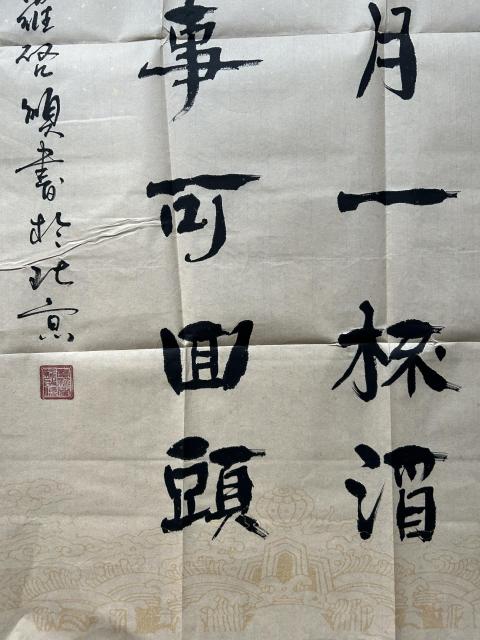 月一杯酒
事可回頭
書於北京